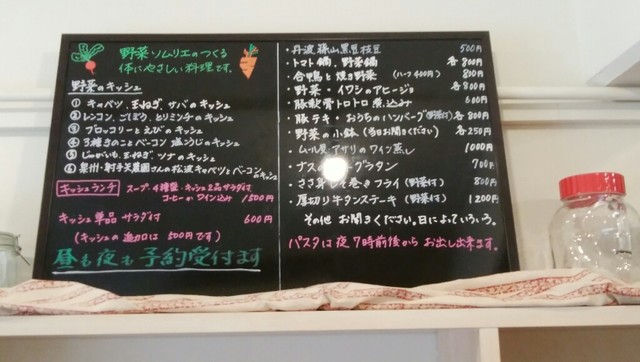 野菜ソムリエのつくる
体にやさしい料理です。
野菜のキッシュ
① キャベツ、玉ねぎ、サバのキッシュ
② レンコン、ごぼう、とりミンチのキッシュ
③ ブロッコリーとえびのキッシュ
④ 3種きのことベーコン 塩こうじのキッシュ
⑤ じゃがいも、玉ねぎ、ツナのキッシュ
⑥ 泉州・射手矢農園さんの松波キャベツとベーコンのキッシュ
キッシュランチ スープ・4種盛・キッシュ2品サラダ付
コーヒーかワイン込み 1500円
キッシュ単品 サラダ付 600円
(キッシュの追加口は 500円です)
昼も夜も予約受付ます
・丹波篠山黒豆枝豆 500円
・トマト鍋、野菜鍋 各800円
・合鴨と焼き野菜 (ハーフ400円) 800円
・野菜・イワシのアヒージョ 各800円
・豚軟骨トロトロ煮込み 600円
・豚テキ・おうちのハンバーグ(野菜付) 各800円
・野菜の小鉢(当日お聞きください) 各250円
・ムール貝・アサリのワイン蒸し 1000円
・ナスの グラタン 700円
・ささ身しそ巻きフライ(野菜付) 800円
・厚切り牛タンステーキ(野菜付) 1200円
その他 お聞きください。日によっていろいろ。
パスタは夜7時前後からお出し出来ます。